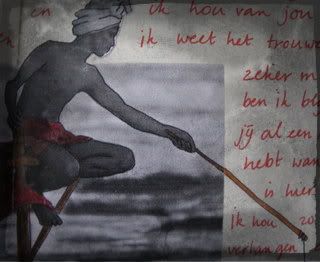 en ik hou van jou
en ik weet het trouwe
zeker m
ben ik bij
jij al een
hebt wan
is hier
Ik hou zo
verlangen